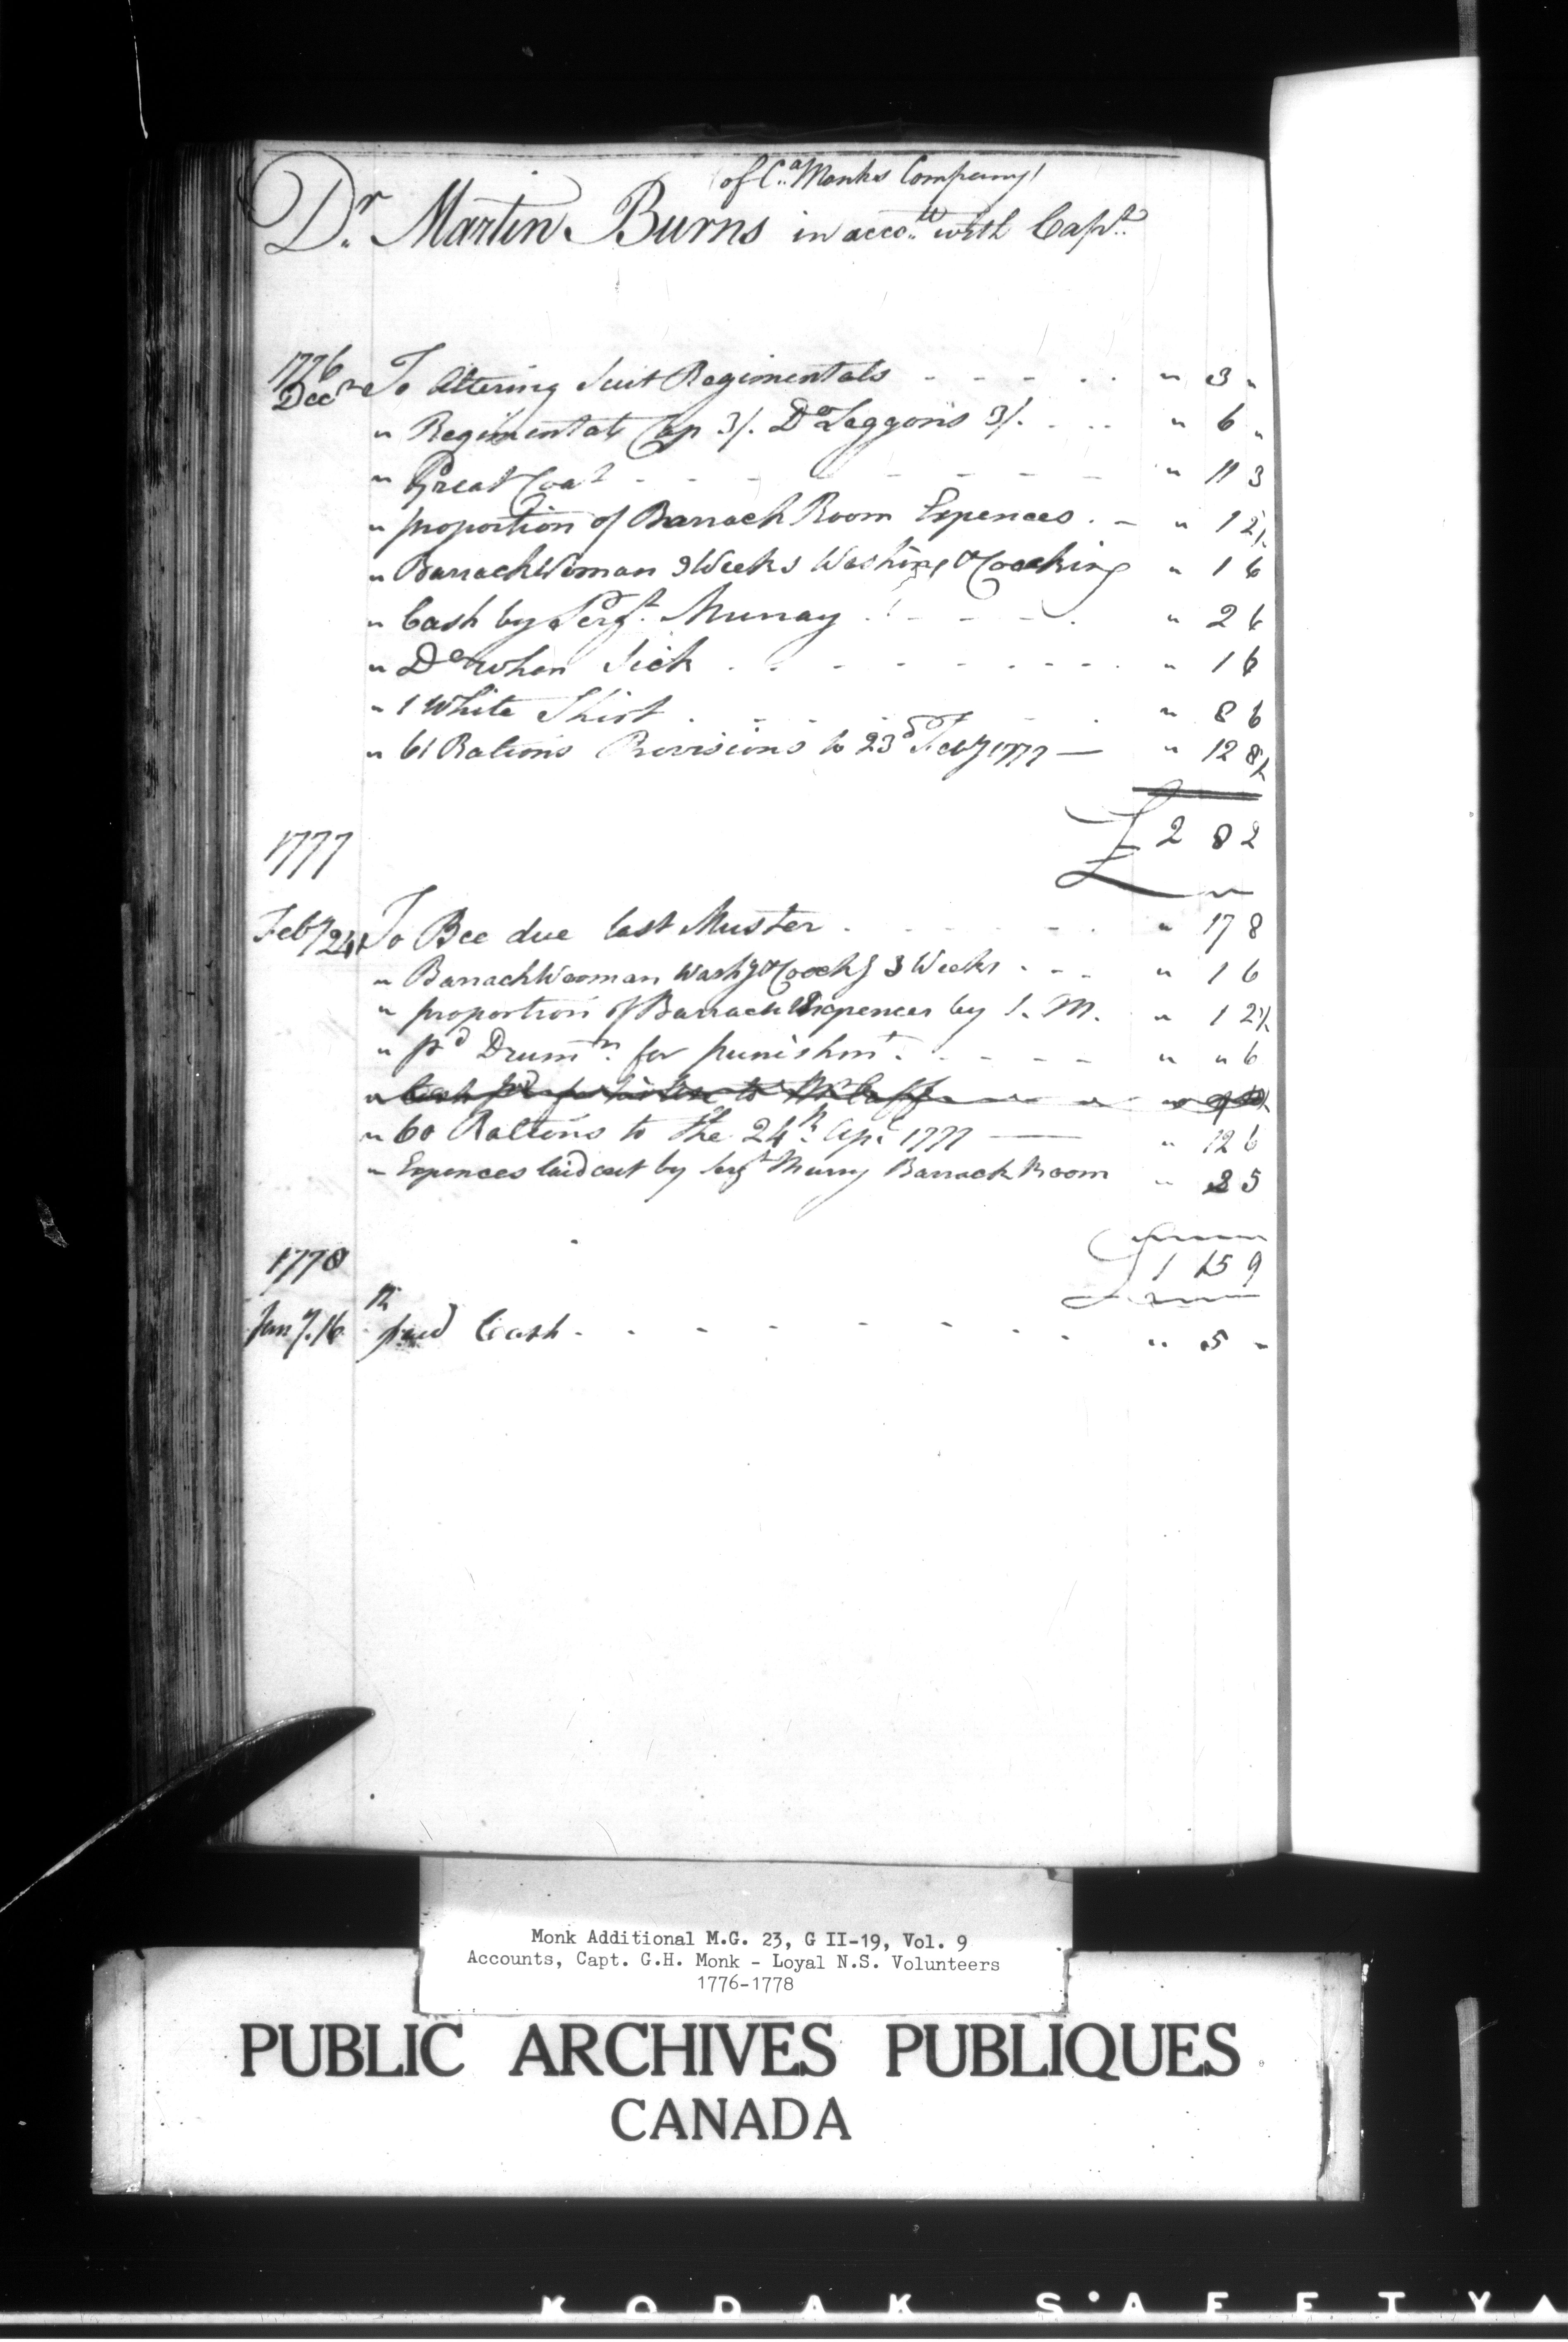 of Ca. Monks Company
Dr. Martin Burns in acco.tt with Capt.
1776
Decr To Altering Suit Regimentals - - - - . . " 3 "
" Regimental Cap 3/. Do Leggons 3/. . . . " 6 "
" Great Coat - - - - - - - " 11 3
" proportion of Barrack Room Expences . - " 1 2½
" BarrackWoman 3 Weeks Washing & Coocking " 1 6
" Cash by Sergt. Murray . - - - . " 2 6
" Do when Sick . . - - - - - - - . " 1 6
" 1 White Shirt . - - - - . " 8 6
" 61 Rations Provisions to 23d Feby 1777 — " 12 8½
£ 2 8 2
1777
Feby 24 To Bce due last Muster . - - - . " 17 8
" BarrackWooman Washg & Coockg 3 Weeks . - - " 1 6
" proportion of Barrack Expences by S. M. " 1 2½
" pd Drumrs. for punishmt. - - - - " " 6
" Cash pd
" 60 Rations to the 24th. Apl 1777 — " 12 6
" Expences laid out by Sergt Murry Barrack Room " 2 5
£ 1 15 9
1778
Jany. 16th paid Cash - - - - - - - - " 5 -
Monk Additional M.G. 23, G II-19, Vol. 9
Accounts, Capt. G.H. Monk - Loyal N.S. Volunteers
1776-1778
PUBLIC ARCHIVES PUBLIQUES
CANADA
KODAK S·AFETY